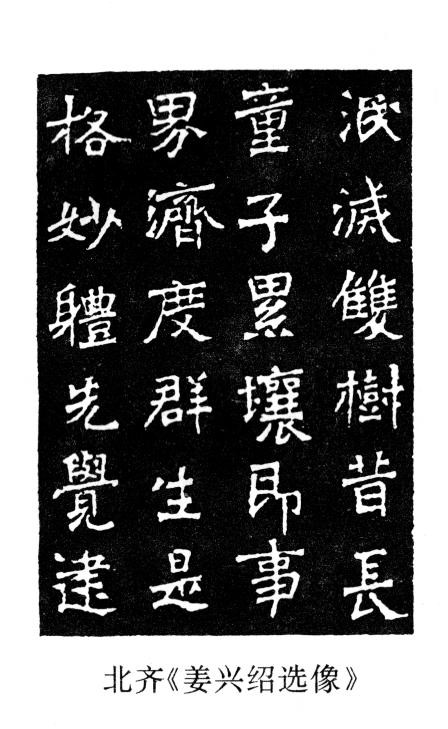 泯滅雙樹昔長
童子累壤即事
界濟度群生是
格妙軆先覺逮
北齐《姜兴绍选像》